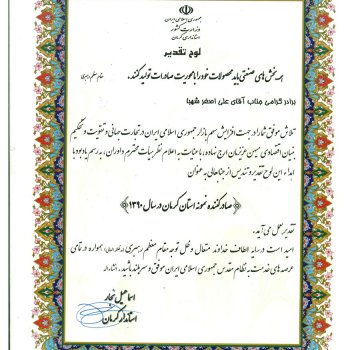 جمهوری اسلامی ایران
وزارت کشور
استانداری کرمان
لوح تقدیر
همه بخش های صنعتی باید محصولات خود را با محوریت صادرات تولید کنند. مقام معظم رهبری
برادر گرامی جناب آقای علی اصغر شهبا
تلاش موفق شما را در جهت افزایش سهم بازار جمهوری اسلامی ایران در تجارت جهانی و تقویت و تحکیم
بنیان اقتصادی میهن عزیزمان ارج نهاده، با عنایت به اعلام نظر هیأت محترم داوران، به رسم یادبود با
اهداء این لوح تقدیر و تندیس از جنابعالی به عنوان
صادرکننده نمونه استان کرمان در سال ۱۳۹۰
تقدیر بعمل می آید.
امید است در سایه الطاف خداوند متعال و تحت توجه مقام معظم رهبری همواره در تمامی
عرصه های خدمت به نظام مقدس جمهوری اسلامی ایران موفق و سربلند باشید. انشاءا...
اسماعیل نجار
استاندار کرمان